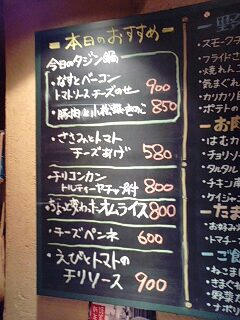 本日のおすすめ
今日のタジン鍋
・なすとベーコン
トマトソースチーズのせ 900
・豚肉と小松菜きのこ 850
・ささみとトマト
チーズあげ 580
・チリコンカン
トルティーヤチップ付 800
ちょっと変わったオムライス 800
・チーズペンネ 600
・えびとトマトの
チリソース 900
スモークチ
フライドポ
焼れん
気まぐ
カリカリ
ポテト
お肉
はむカ
チョリソ
タルタル
チキン南
ケイジャン
たま
お好み
トマト
ご飯
ねこま
きまぐれ
野菜
ナポリ